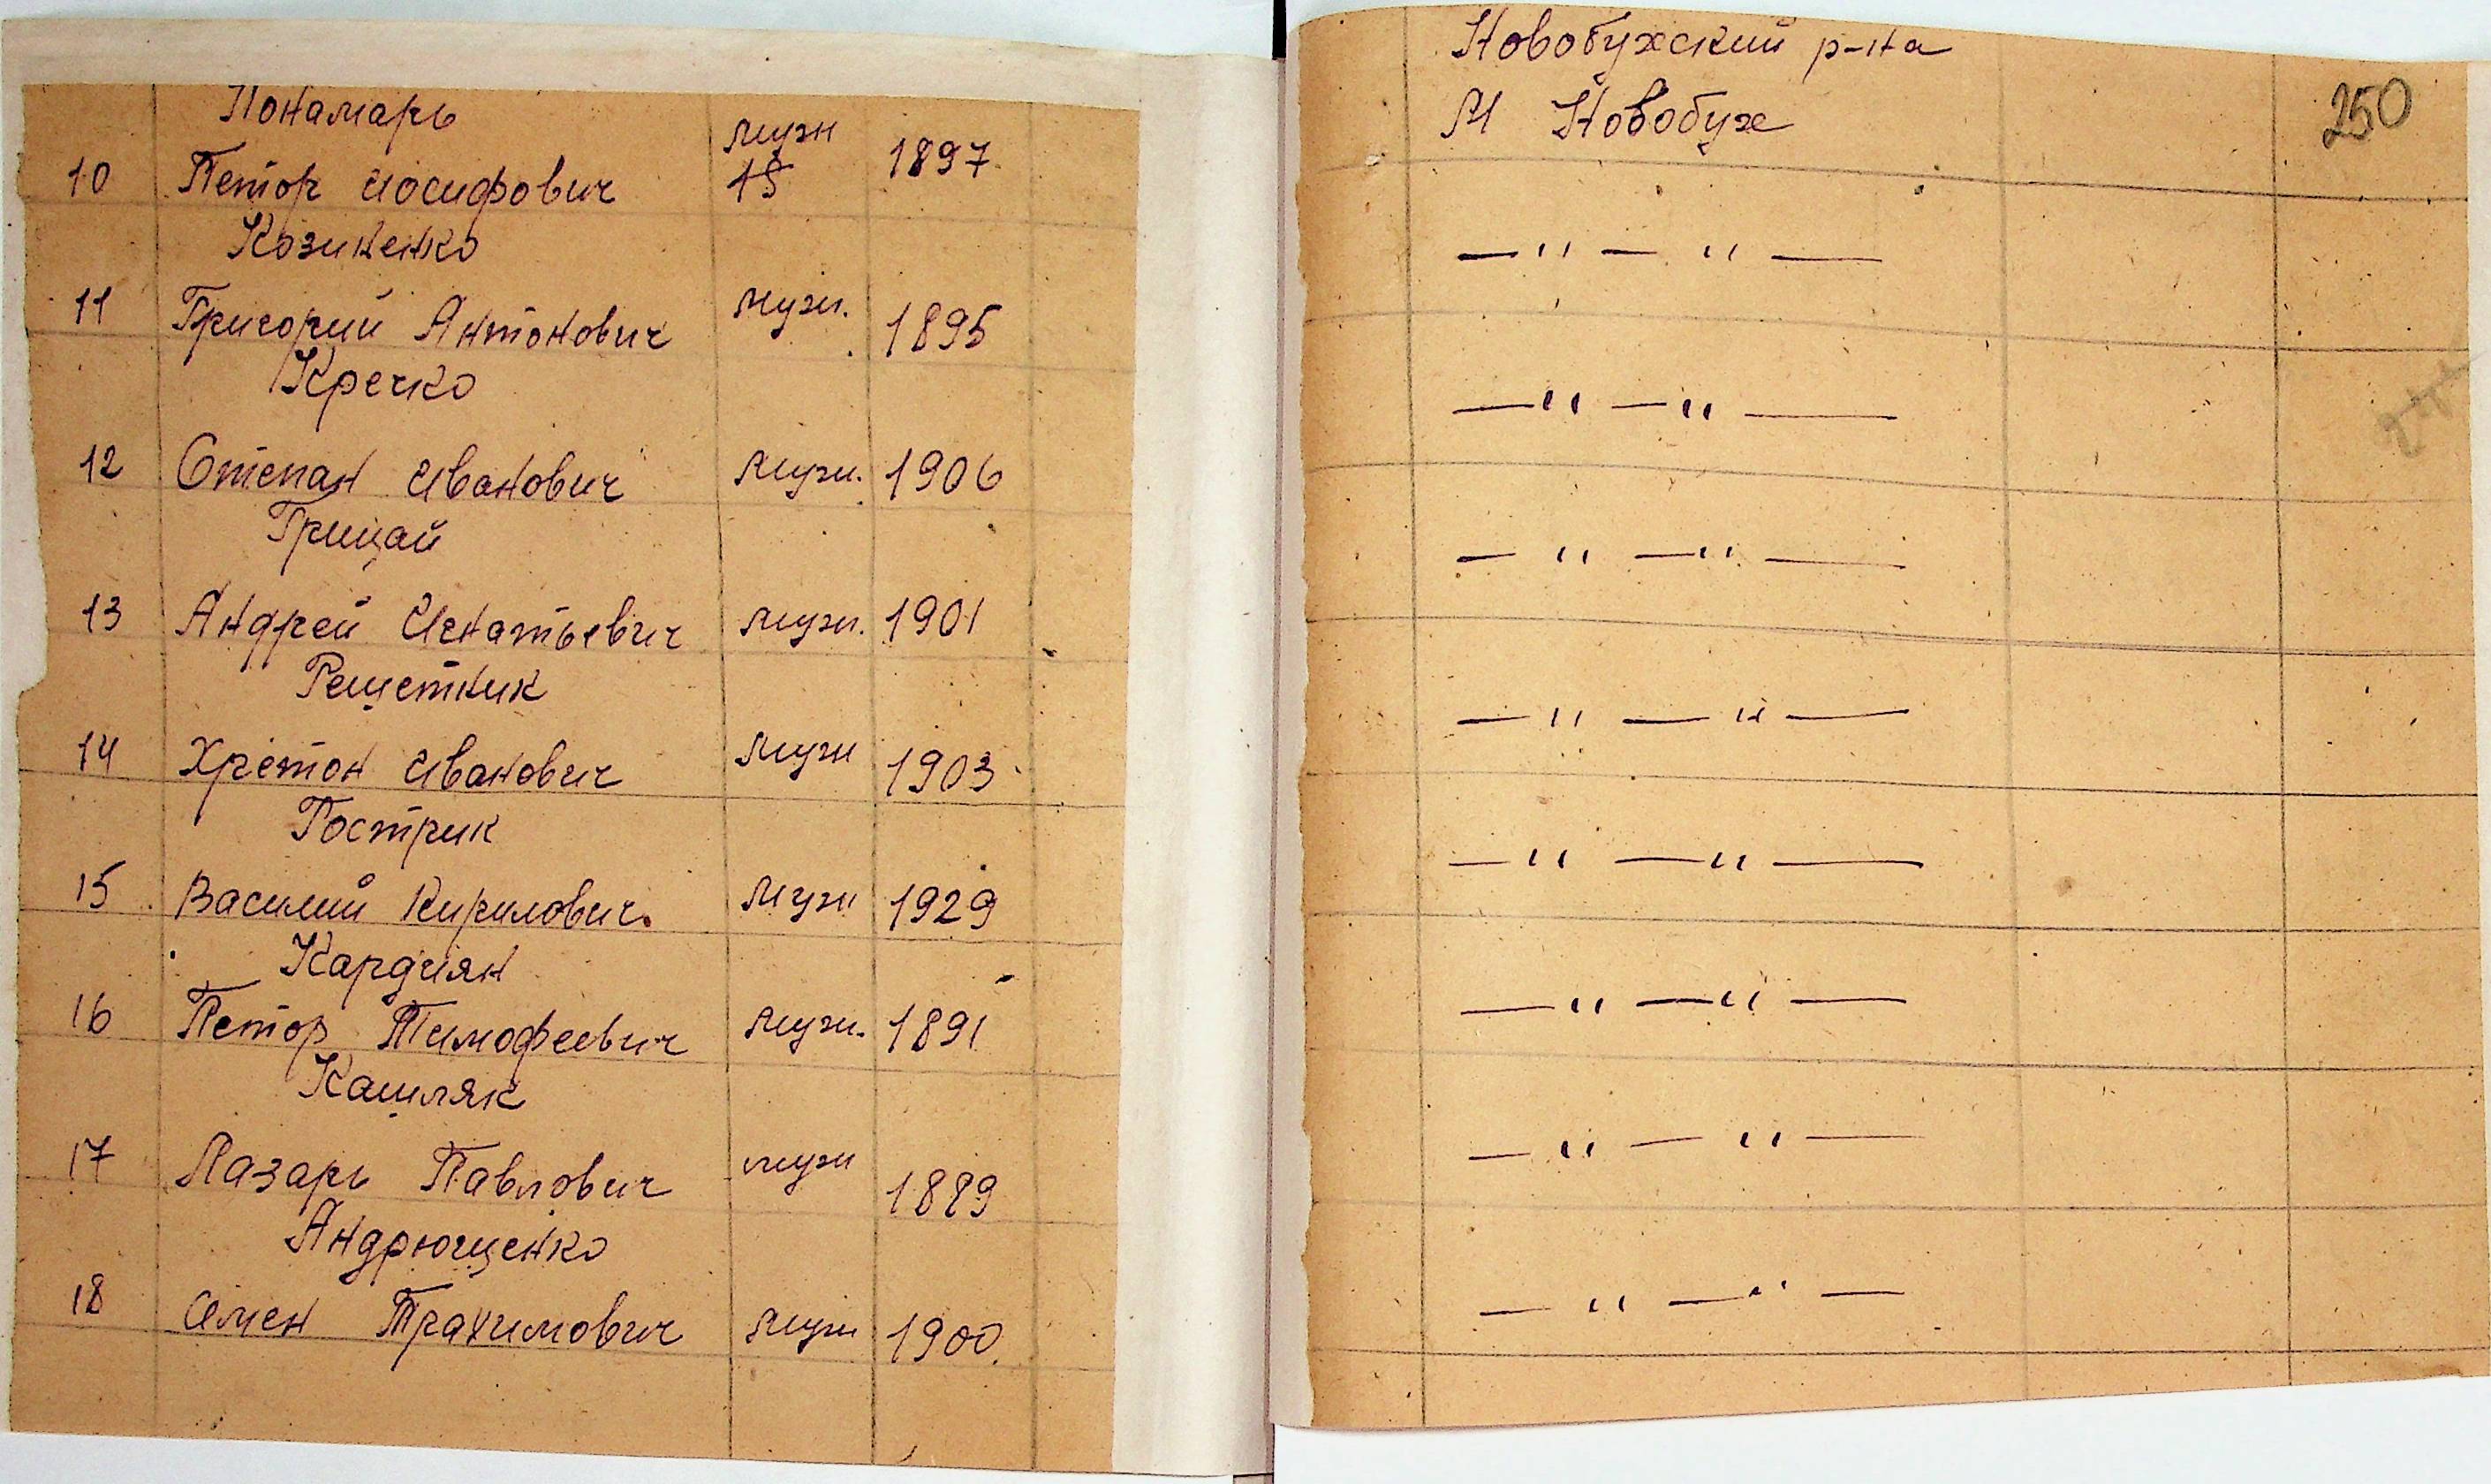 Понамарь
10 Петор Иосифович мужн 1897
Козиненко
11 Григорий Антонович мужн. 1895
Кречко
12 Степан Иванович мужн. 1906
Грицай
13 Андрей Игнатьевич мужн. 1901
Решетник
14 Хретон Иванович мужн 1903
Гострик
15 Василий Кирилович. мужн 1929
Кардиян
16 Петор Тимофеевич мужн. 1891
Кашляк
17 Лазарь Павлович мужн 1889
Андрющенко
18 Семен Трахимович мужн 1900.
Новобухский р-на
М Новобух
250
— " — " —
— " — " —
— " — " —
— " — " —
— " — " —
— " — " —
— " — " —
— " — " —